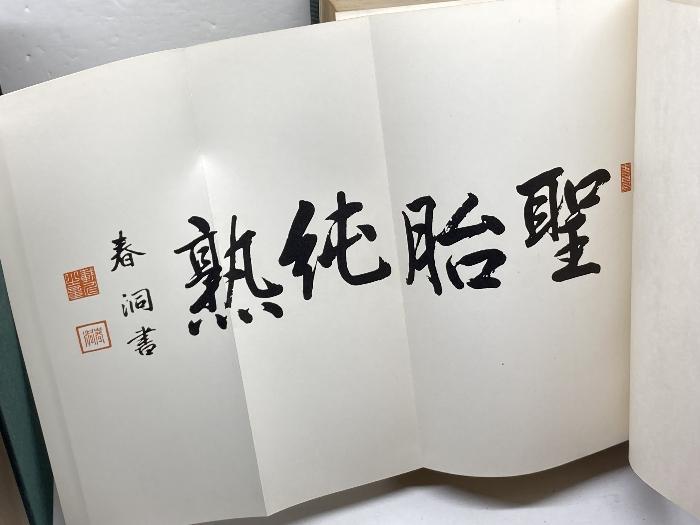 聖胎純熟
春洞書